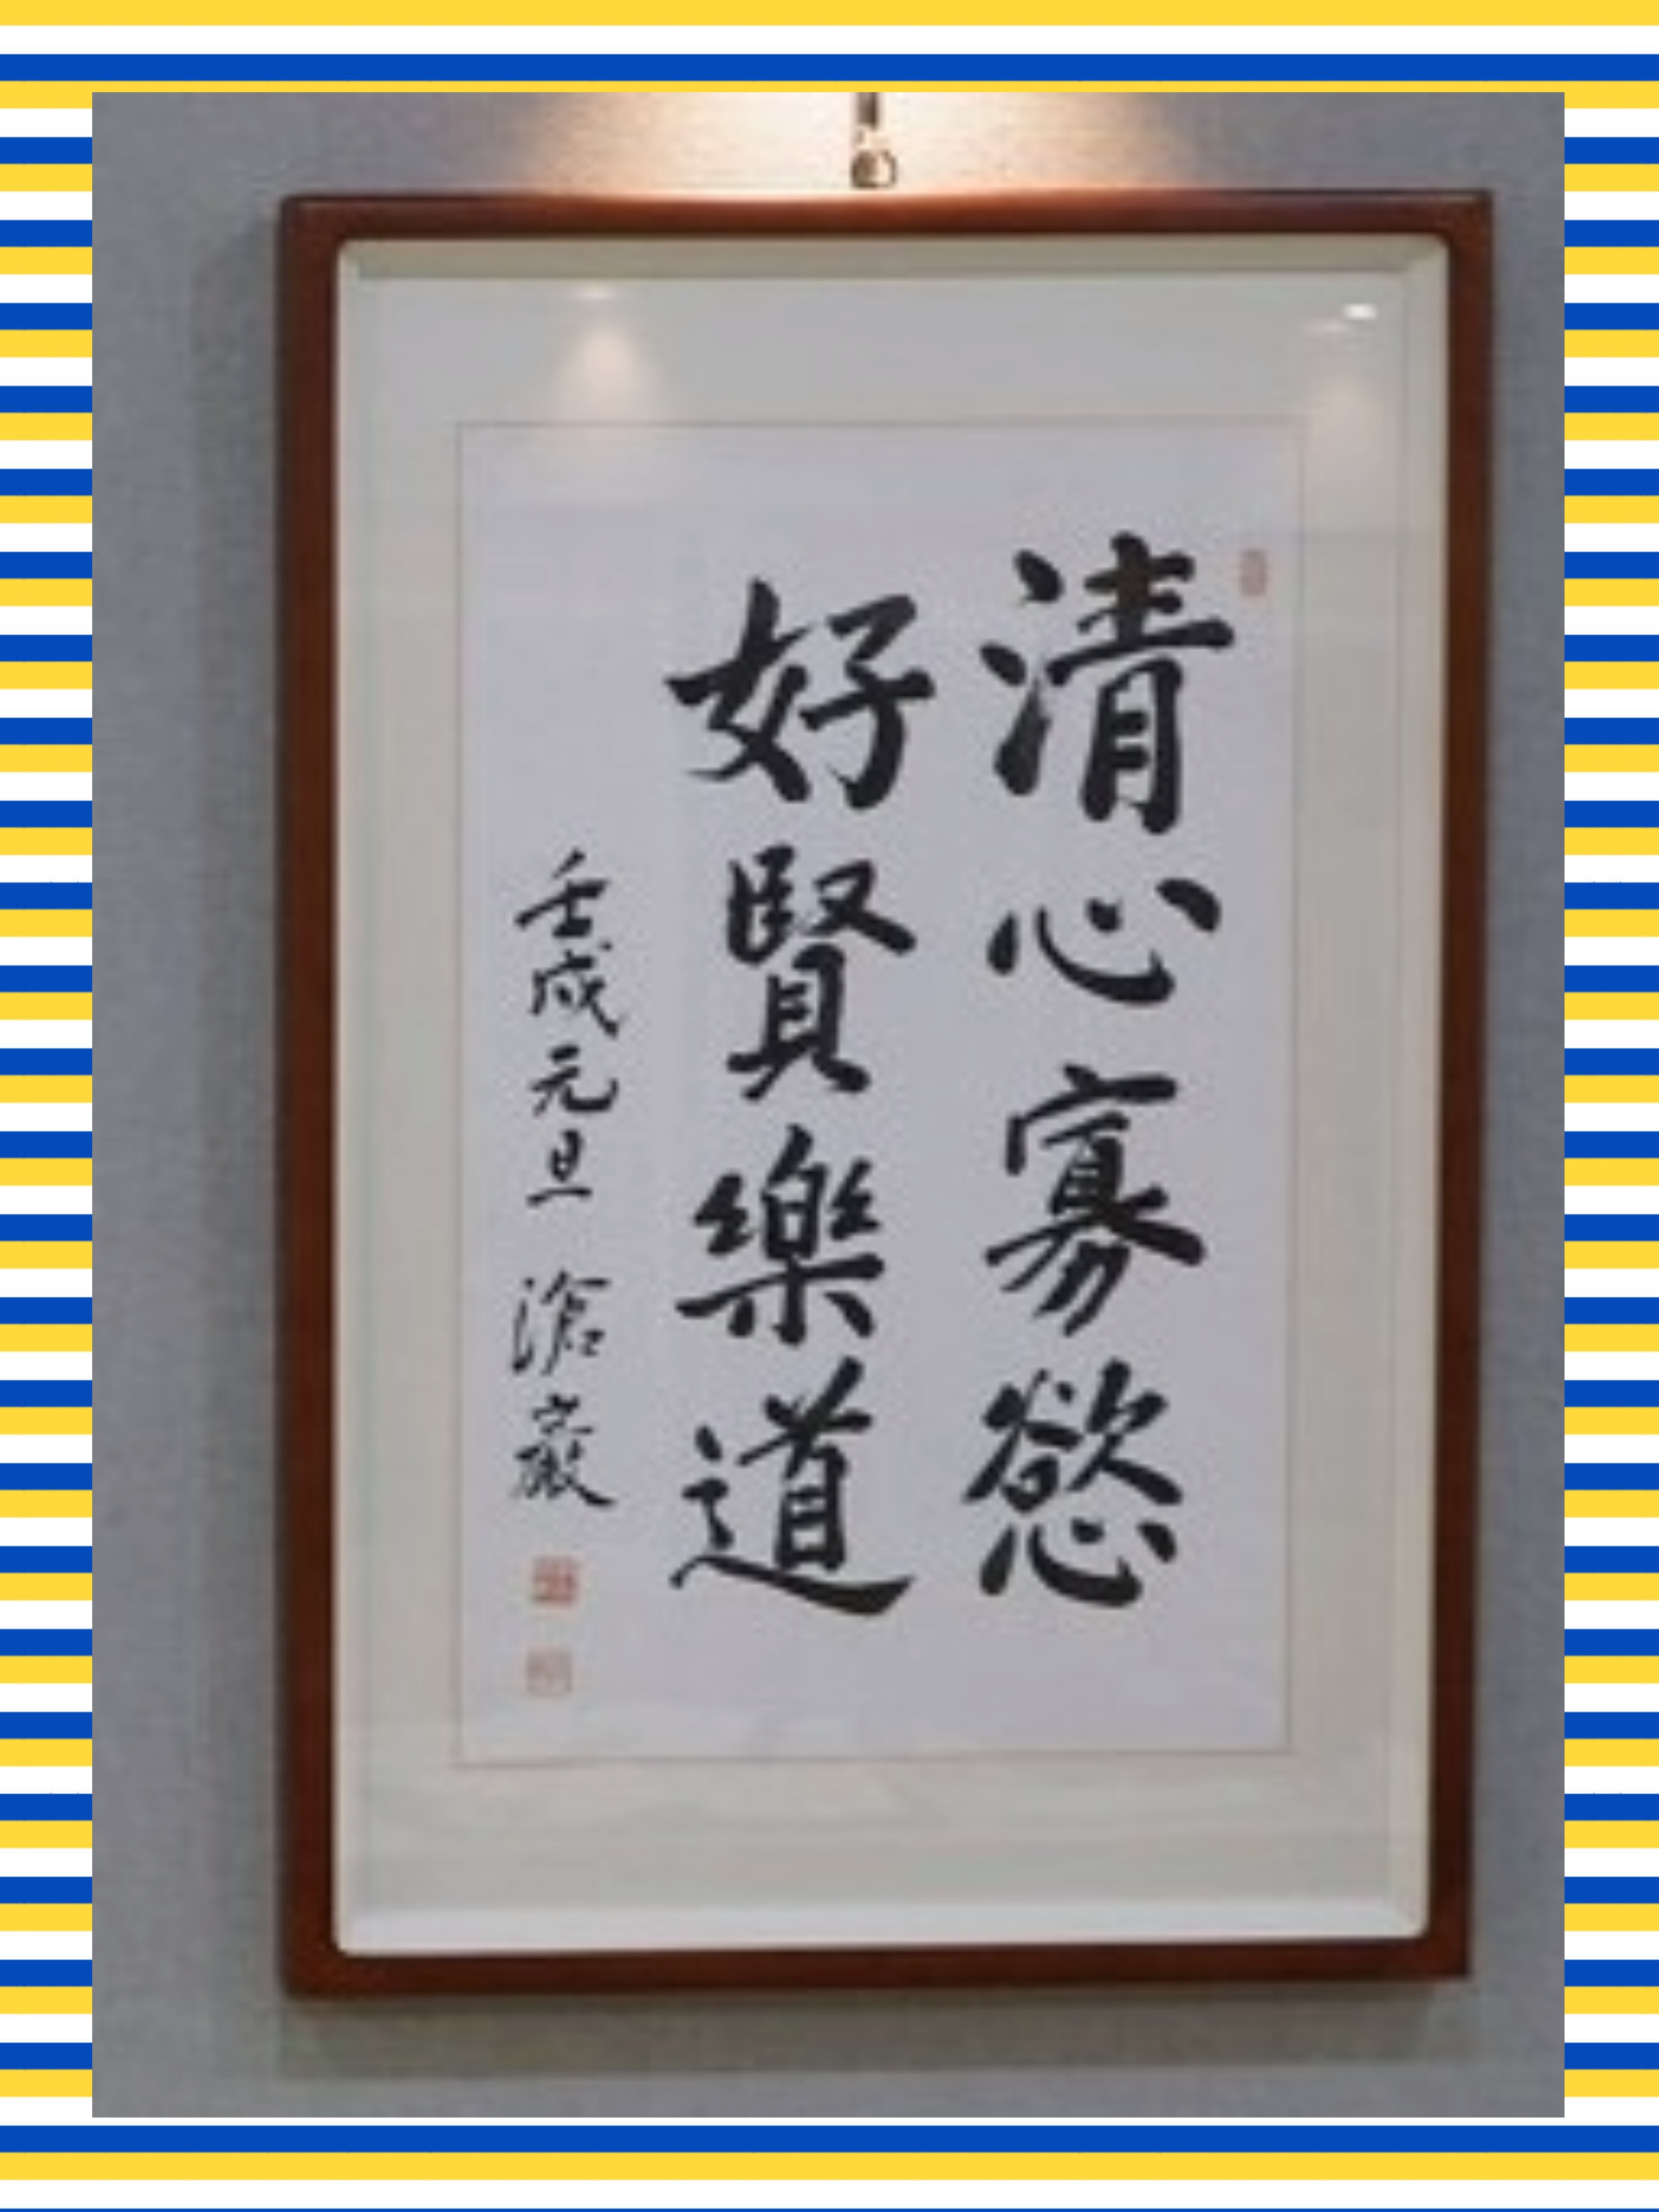 清心寡慾
好賢樂道
壬戌元旦 滄巖